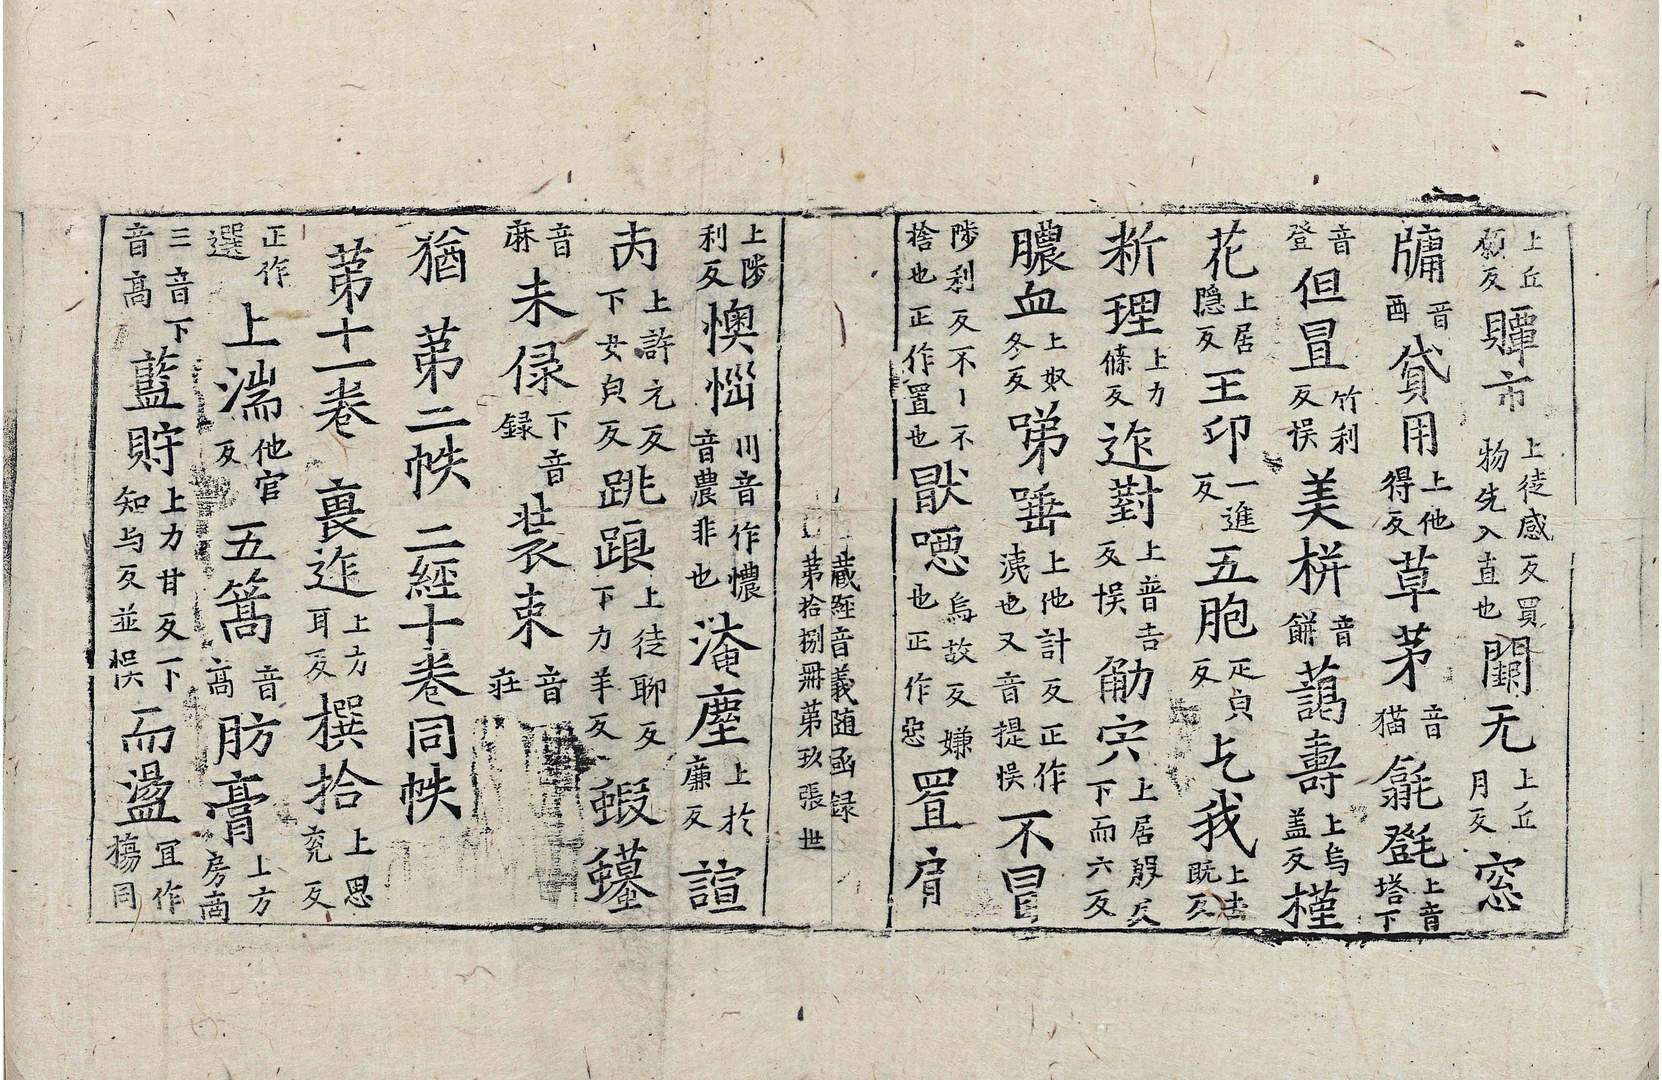 上丘願反 贉市 上徒感反買物先入直也 闡无 上丘月反 窓
牗 音酉 貸用 上他得反 草茅 音猫 毾㲪 上音塔下
音登 但冒 竹利反悮 美栟 音餅 藹壽 上烏盖反 槿
花 上居隐反 王印 一進反 五胞 疋皃反 乞我 上去既反
斱理 上力條反 迮對 上普告反悮 觔宍 上居殷反下而六反
膿血 上奴冬反 唏唾 上他計反正作洟也又音提悮 不冒
陟利反不丨不捨也正作置也 猒噁 烏故反嫌也正作惡 罯肎
藏經音義随函録 第拾捌冊第玖張 世
上陟利反 懊惱 川音作憹音農非也 淹塵 上於廉反 諠
丙 上許元反下女皃反 跳踉 上徒聊反下力羊反 蝦蟇
音麻 未録 下音録 裝束 音莊
猶 第二帙 二經十卷同帙
第十一卷 裹迮 上方耳反 撰拾 上思兖反
正作選 上湍 他官反 五篙 音高 肪膏 上方房啇
三音下音高 藍貯 上力甘反下知与反並悮 而盪 冝作㿒同